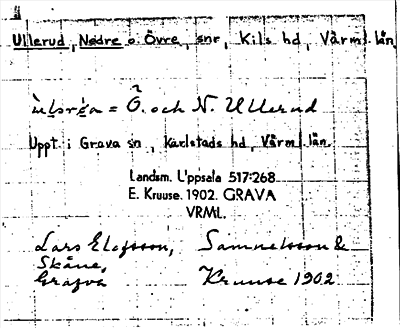 Ullerud, Nedre o. Övre, snr, Kils hd, Värml. län.
= Ö. och N. Ullerud
Uppt. i Grava sn, Karlstads hd, Värml. län.
Landsm. Uppsala 517:268
E. Kruuse. 1902. GRAVA
VRML.
Lars Elofsson, Samuelsson &
Skåne, Kruuse 1902
Grafva